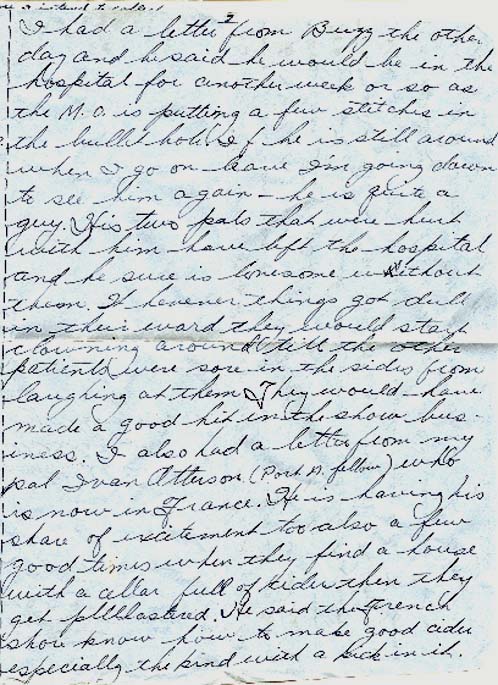 2
I had a letter from Buzz the other
day and he said he would be in the
hospital for another week or so as
the M.O. is putting a few stitches in
the bullet hole. If he is still around
when I go on leave I'm going down
to see him again - he is quite a
guy. His two pals that were hurt
with him have left the hospital
and he sure is lonesome without
them. If henever things got dull
in their ward they would start
clowning around till the other
patients were sore in the sides from
laughing at them. They would have
made a good hit in the show bus-
iness. I also had a letter from my
pal Ivan Atterson (Port A. fellow) who
is now in France. He is having his
share of excitement too also a few
good times when they find a house
with a cellar full of cider then they
get pllllastered. He said the French
show know how to make good cider
especially the kind with a kick in it.